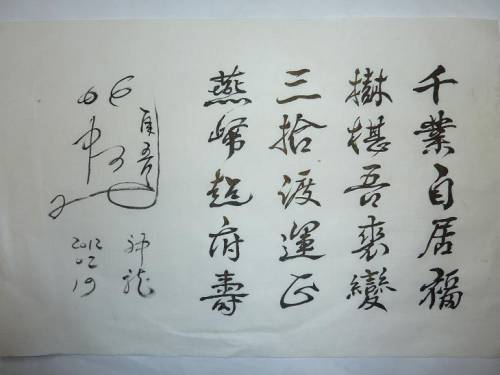 千業自居福
樹椹吾變
三拾渡運正
燕歸起府壽
自吾
龍
2012
02
19